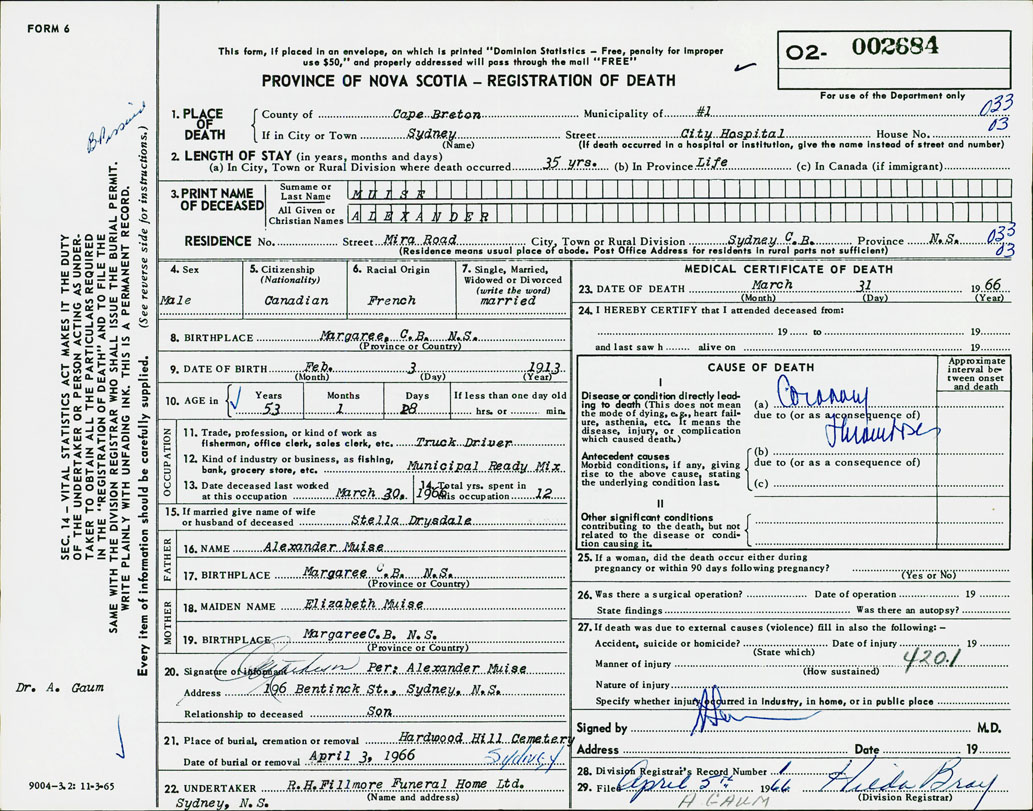 FORM 6
This form, if placed in an envelope, on which is printed "Dominion Statistics – Free, penalty for improper
use $50," and properly addressed will pass through the mail "FREE"
PROVINCE OF NOVA SCOTIA – REGISTRATION OF DEATH
02- 002684
For use of the Department only
1. PLACE OF DEATH
County of Cape Breton Municipality of #1 033
If in City or Town Sydney Street City Hospital House No. 03
(Name) (If death occurred in a hospital or institution, give the name instead of street and number)
2. LENGTH OF STAY (in years, months and days)
(a) In City, Town or Rural Division where death occurred 35 yrs. (b) In Province Life (c) In Canada (if immigrant)
3. PRINT NAME OF DECEASED
Surname or Last Name MUISE
All Given or Christian Names ALEXANDER
RESIDENCE No. Street Mira Road City, Town or Rural Division Sydney C.B. Province N.S. 033
(Residence means usual place of abode. Post Office Address for residents in rural parts not sufficient) 03
4. Sex
Male
5. Citizenship
(Nationality)
Canadian
6. Racial Origin
French
7. Single, Married,
Widowed or Divorced
(write the word)
married
8. BIRTHPLACE Margaree, C.B. N.S.
(Province or Country)
9. DATE OF BIRTH Feb. 3 1913
(Month) (Day) (Year)
10. AGE in Years Months Days If less than one day old
53 1 28 hrs. or min.
OCCUPATION
11. Trade, profession, or kind of work as
fisherman, office clerk, sales clerk, etc. Truck Driver
12. Kind of industry or business, as fishing,
bank, grocery store, etc. Municipal Ready Mix
13. Date deceased last worked
at this occupation March 30, 1966
14. Total yrs. spent in
this occupation 12
15. If married give name of wife
or husband of deceased Stella Drysdale
FATHER
16. NAME Alexander Muise
17. BIRTHPLACE Margaree C.B. N.S.
(Province or Country)
MOTHER
18. MAIDEN NAME Elizabeth Muise
19. BIRTHPLACE Margaree C.B. N.S.
(Province or Country)
20. Signature of informant Per: Alexander Muise
Address 196 Bentinck St., Sydney, N.S.
Relationship to deceased Son
21. Place of burial, cremation or removal Hardwood Hill Cemetery
Date of burial or removal April 3, 1966 Sydney
22. UNDERTAKER R.H.Fillmore Funeral Home Ltd.
Sydney, N.S. (Name and address)
MEDICAL CERTIFICATE OF DEATH
23. DATE OF DEATH March 31 1966
(Month) (Day) (Year)
24. I HEREBY CERTIFY that I attended deceased from:
19 to 19
and last saw h alive on 19
CAUSE OF DEATH
Approximate
interval be-
tween onset
and death
I
Disease or condition directly lead-
ing to death (This does not mean
the mode of dying, e.g., heart fail-
ure, asthenia, etc. It means the
disease, injury, or complication
which caused death.)
(a) Coronary
due to (or as a consequence of)
Thrombosis
Antecedent causes
Morbid conditions, if any, giving
rise to the above cause, stating
the underlying condition last.
(b)
due to (or as a consequence of)
(c)
II
Other significant conditions
contributing to the death, but not
related to the disease or condi-
tion causing it.
25. If a woman, did the death occur either during
pregnancy or within 90 days following pregnancy?
(Yes or No)
26. Was there a surgical operation? Date of operation 19
State findings Was there an autopsy?
27. If death was due to external causes (violence) fill in also the following: –
Accident, suicide or homicide? Date of injury 19
(State which)
Manner of injury 420.1
(How sustained)
Nature of injury
Specify whether injury occurred in Industry, in home, or in public place
Signed by M.D.
Address Date 19
28. Division Registrar's Record Number
29. Filed April 5th 1966 Hilda Bray
A GAUM (Division Registrar)
SEC. 14 – VITAL STATISTICS ACT MAKES IT THE DUTY
OF THE UNDERTAKER OR PERSON ACTING AS UNDER-
TAKER TO OBTAIN ALL THE PARTICULARS REQUIRED
IN THE "REGISTRATION OF DEATH" AND TO FILE THE
SAME WITH THE DIVISION REGISTRAR WHO SHALL ISSUE THE BURIAL PERMIT.
WRITE PLAINLY WITH UNFADING INK. THIS IS A PERMANENT RECORD.
Every item of information should be carefully supplied. (See reverse side for instructions.)
Dr. A. Gaum
9004-3.2: 11-3-65